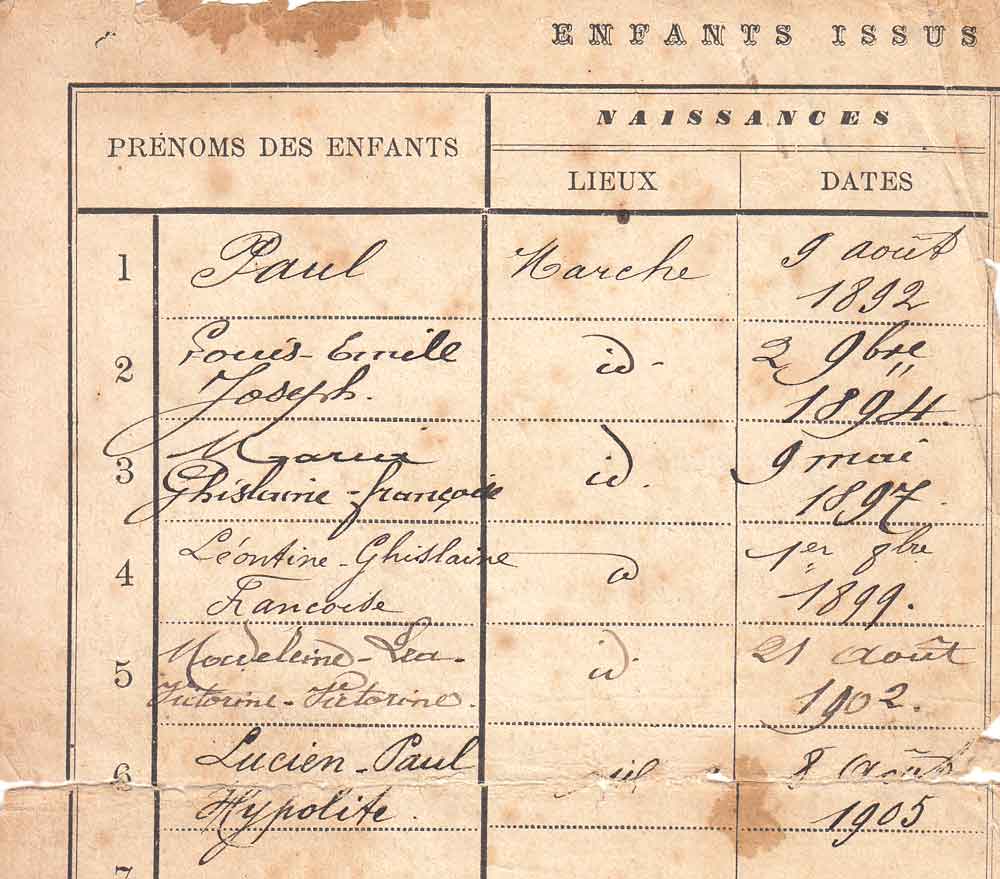 ENFANTS ISSUS
PRÉNOMS DES ENFANTS
NAISSANCES
LIEUX
DATES
1 Paul Marche 9 août
1892
2 Louis-Emile id. 2 9bre
Joseph. 1894.
3 Maria id. 9 mai
Ghislaine-françoise 1897.
4 Léontine-Ghislaine id 1er 8bre
Francoise 1899.
5 Madeleine-Léa- id. 21 août
Victorine-Victorine. 1902.
6 Lucien-Paul id 8 Août
Hypolite. 1905
7